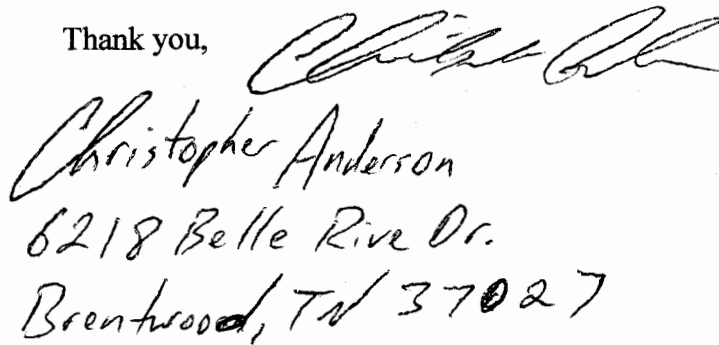 Thank you,
Christopher Anderson
6218 Belle Rive Dr.
Brentwood, TN 37027